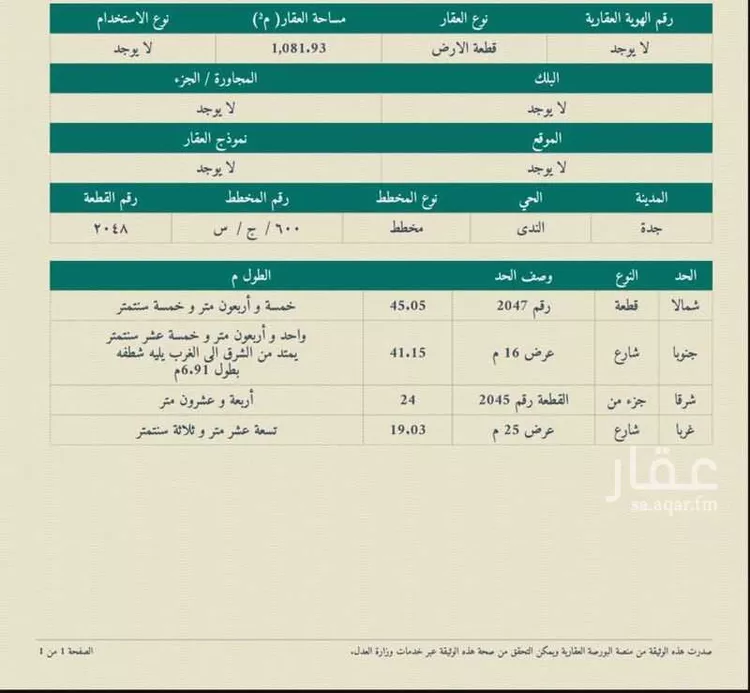 رقم الهوية العقارية نوع العقار مساحة العقار( م²) نوع الاستخدام
لا يوجد قطعة الارض 1,081.93 لا يوجد
البلك المجاورة / الجزء
لا يوجد لا يوجد
الموقع نموذج العقار
لا يوجد لا يوجد
المدينة الحي نوع المخطط رقم المخطط رقم القطعة
جدة الندى مخطط ٦٠٠ / ج / س ٢٠٤٨
الحد النوع وصف الحد الطول م
شمالا قطعة رقم 2047 45.05 خمسة و أربعون متر و خمسة سنتمتر
جنوبا شارع عرض 16 م 41.15 واحد و أربعون متر و خمسة عشر سنتمتر
يمتد من الشرق الى الغرب يليه شطفه
بطول 6.91م
شرقا جزء من القطعة رقم 2045 24 أربعة و عشرون متر
غربا شارع عرض 25 م 19.03 تسعة عشر متر و ثلاثة سنتمتر
عقار
sa.aqar.fm
صدرت هذه الوثيقة من منصة البورصة العقارية ويمكن التحقق من صحة هذه الوثيقة عبر خدمات وزارة العدل.
الصفحة 1 من 1